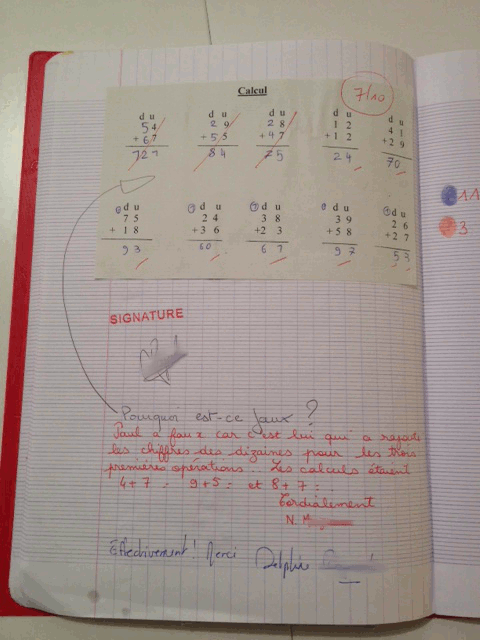 Calcul
7/10
d u d u d u d u d u
5 4 2 9 2 8 1 2 4 1
+ 6 7 + 5 5 + 4 7 + 1 2 + 2 9
121 8 4 7 5 2 4 70
1 d u 1 d u 1 d u 1 d u 1 d u
7 5 2 4 3 8 3 9 2 6
+ 1 8 + 3 6 + 2 3 + 5 8 + 2 7
9 3 60 6 1 9 7 5 3
11
3
SIGNATURE
Pourquoi est-ce faux ?
Paul a faux car c'est lui qui a rajouté
les chiffres des dizaines pour les trois
premières opérations... Les calculs étaient
4+7 = 9+5 = et 8+7 =
Cordialement
N. M
Effectivement ! Merci Delphine